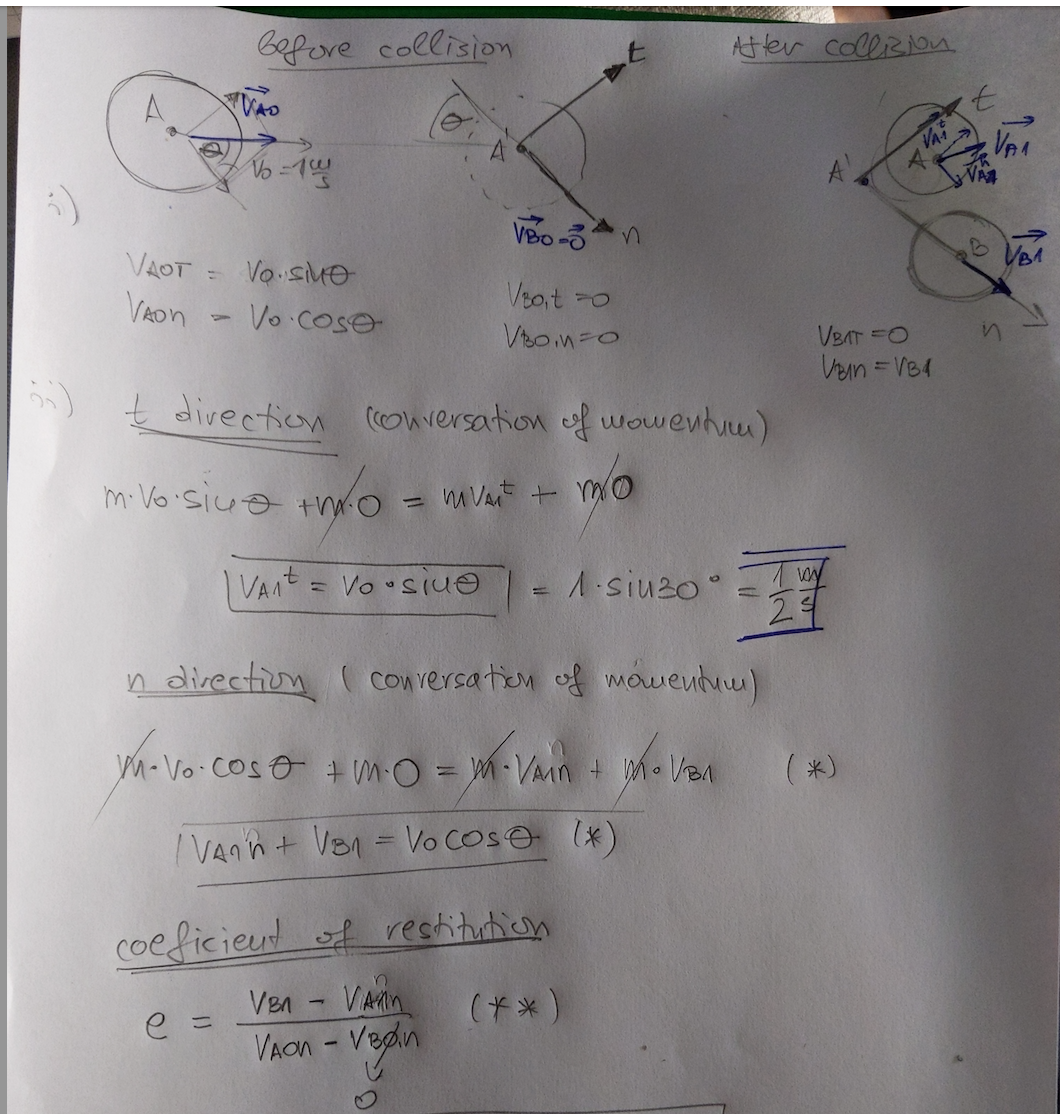 Before collision
After collision
A
VA0
θ
V0 = 1 m/s
θ
A'
t
VB0 = 0
n
t
A'
A
VA1^t
VA1
VA1^n
B
VB1
n
ii)
VA0T = V0·sinθ
VA0n = V0·cosθ
VB0,t = 0
VB0,n = 0
VB1T = 0
VB1n = VB1
iii)
t direction (conversation of momentum)
m·V0·sinθ + m·0 = mVA1^t + m0
VA1^t = V0·sinθ = 1·sin30° = 1/2 m/s
n direction (conversation of momentum)
m·V0·cosθ + m·0 = m·VA1n + m·VB1 (*)
VA1n + VB1 = V0cosθ (*)
coeficient of restitution
e = (VB1 - VA1n)/(VA0n - VB0,n) (**)
0